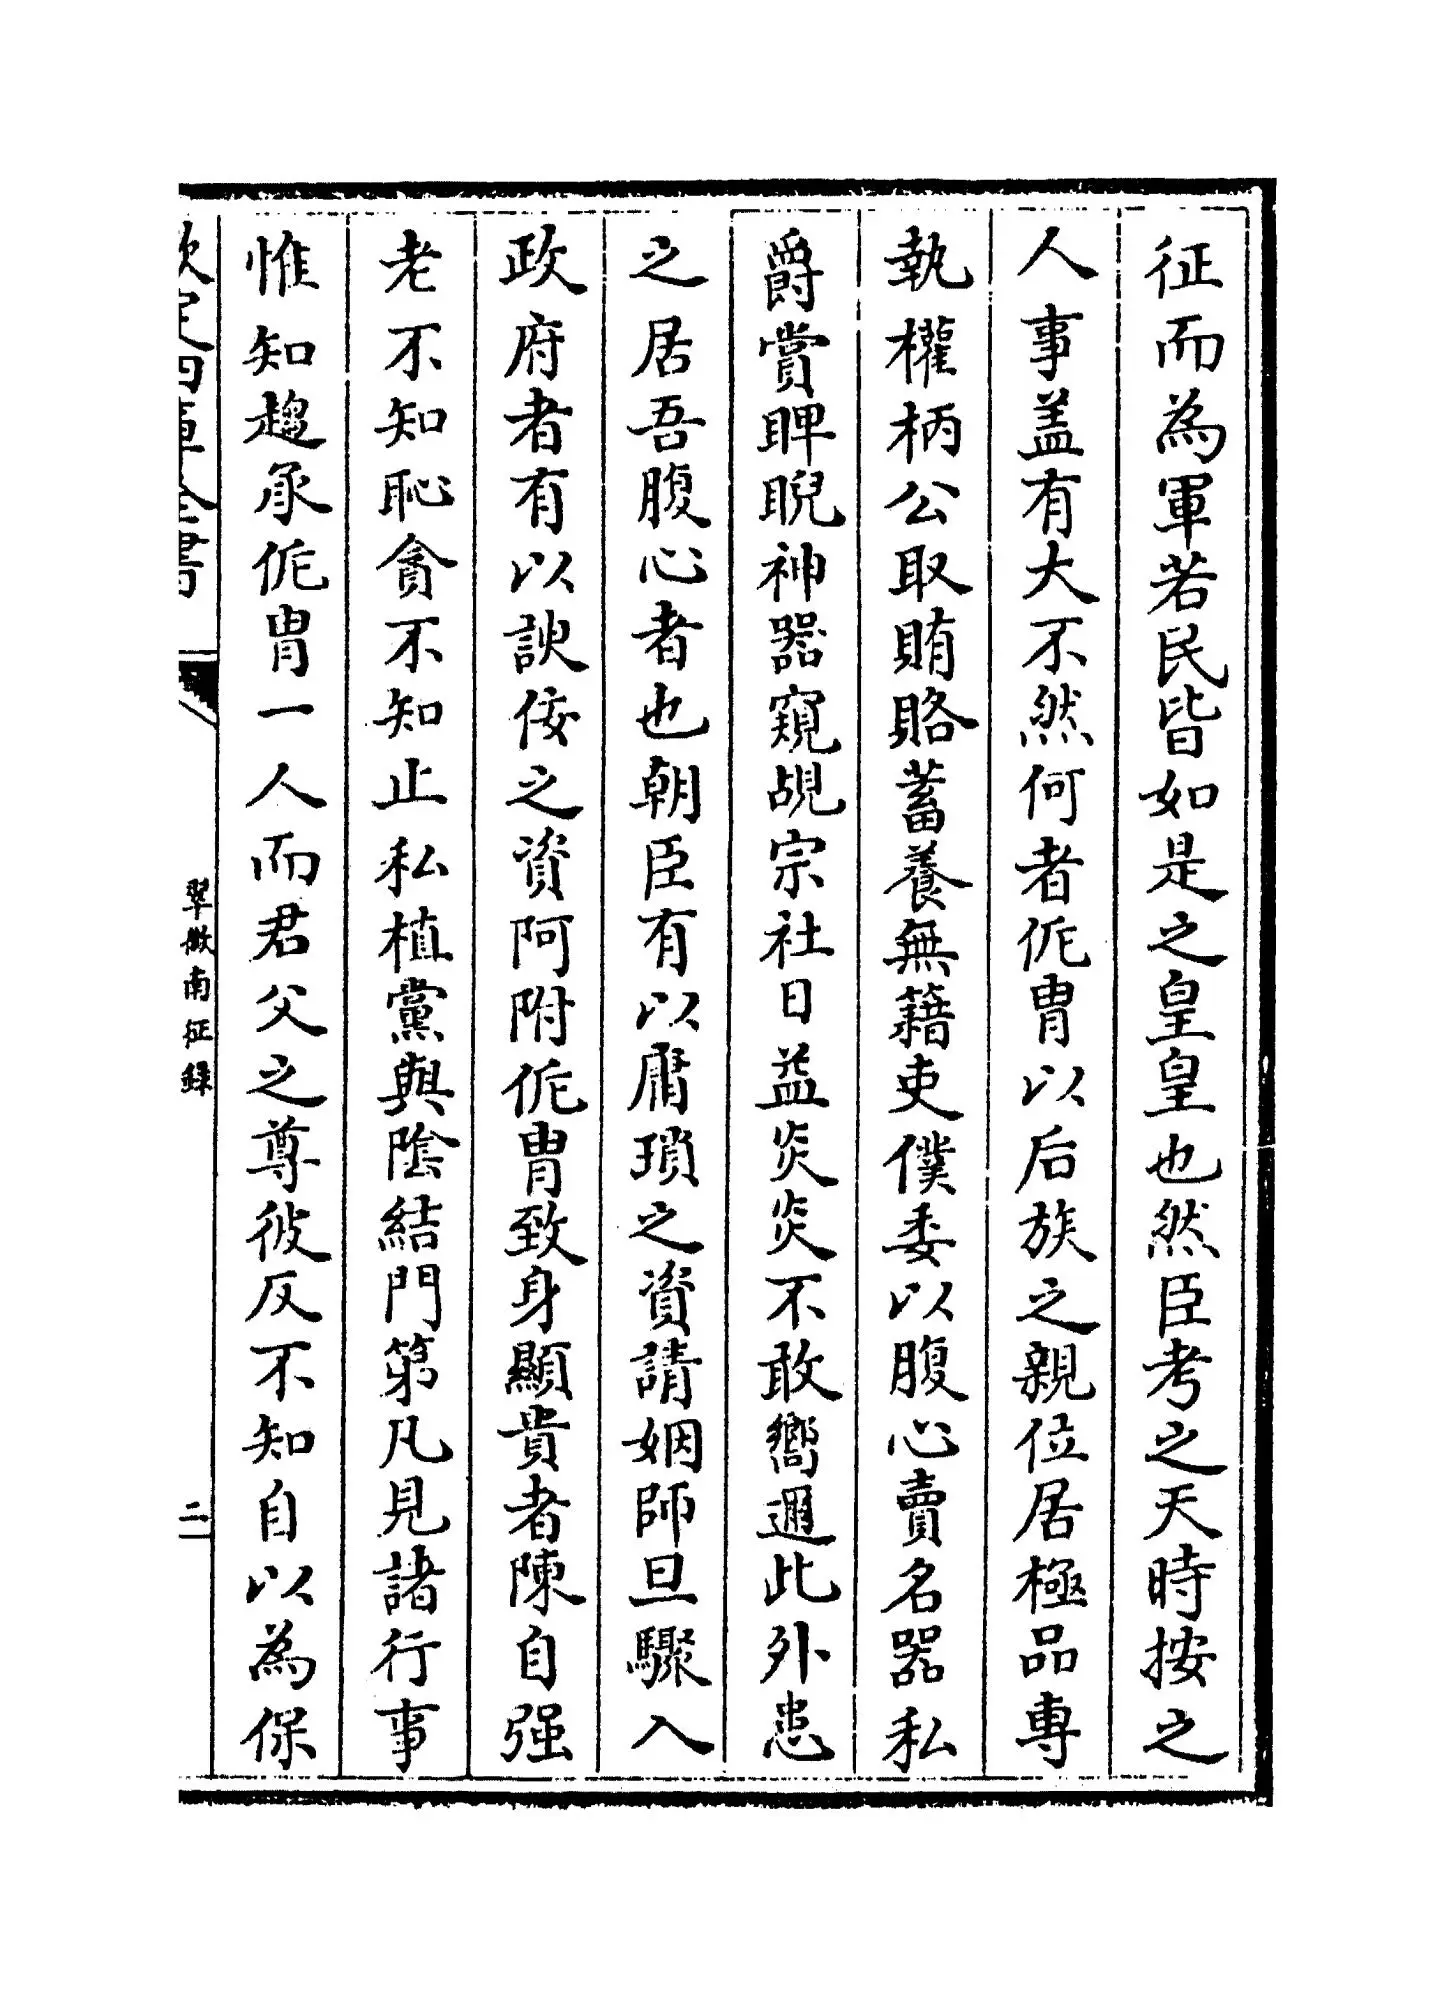 征而為軍若民皆如是之皇皇也然臣考之天時按之
人事盖有大不然何者侂胄以后族之親位居極品專
執權柄公取賄賂蓄養無籍吏僕委以腹心賣名器私
爵賞睥睨神器窺覘宗社日益炎炎不敢嚮邇此外患
之居吾腹心者也朝臣有以庸瑣之資請姻師旦驟入
政府者有以諛佞之資阿附侂胄致身顯貴者陳自强
老不知恥貪不知止私植黨與陰結門第凡見諸行事
惟知趨承侂胄一人而君父之尊彼反不知自以為保
欽定四庫全書
翠微南征錄
二